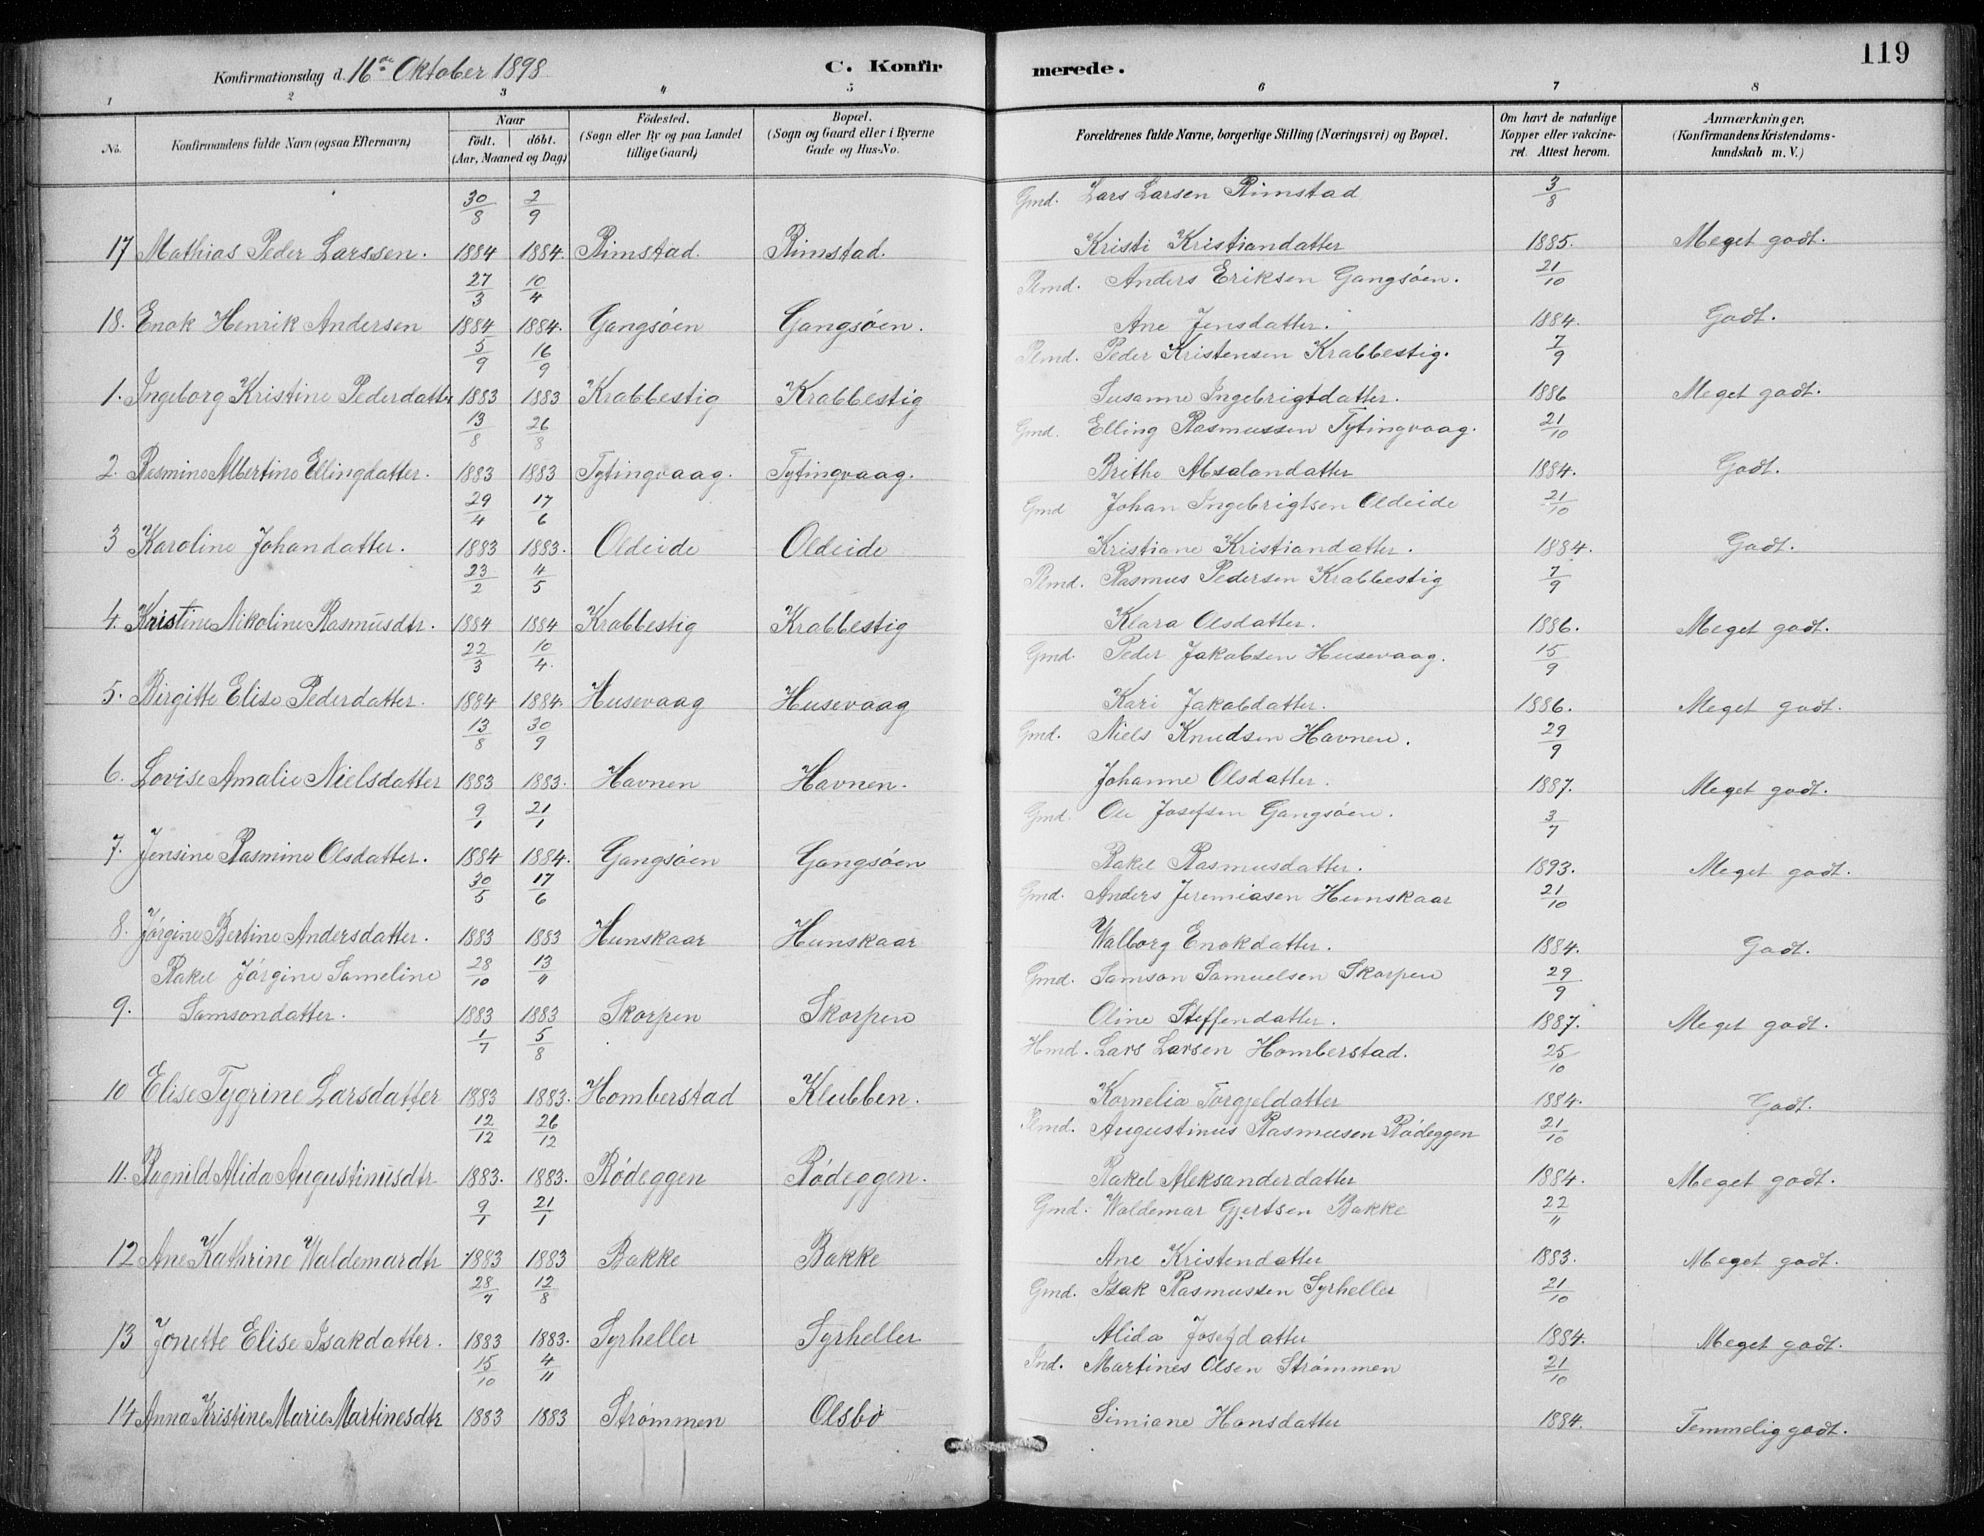 Konfirmationsdag d. 16de Oktober 1898
C. Konfirmerede.
119
1 2 3 4 5 6 7 8
No.
Konfirmandens fulde Navn (ogsaa Efternavn)
Naar
födt. döbt.
(Aar, Maaned og Dag)
Födested.
(Sogn eller By og paa Landet
tillige Gaard)
Bopæl.
(Sogn og Gaard eller i Byerne
Gade og Hus-No.
Forældrenes fulde Navne, borgerlige Stilling (Næringsvei) og Bopæl.
Om havt de naturlige
Kopper eller vakcine-
ret. Attest herom.
Anmærkninger.
(Konfirmandens Kristendoms-
kundskab m. V.)
30/8 2/9 Gmd. Lars Larsen Rimstad 3/8
17 Mathias Peder Larssen. 1884 1884. Rimstad. Rimstad. Kristi Kristiandatter 1885. Meget godt.
27/3 10/4 Plmd. Anders Eriksen Gangsöen. 21/10
18. Enok Henrik Andersen 1884 1884. Gangsöen Gangsöen. Ane Jensdatter. 1884. Godt.
5/9 16/9 Plmd. Peder Kristensen Krabbestig. 7/9
1. Ingeborg Kristine Pederdatter 1883 1883 Krabbestig Krabbestig Susanne Ingebrigtdatter. 1886 Meget godt.
13/8 26/8 Gmd. Elling Rasmussen Tytingvaag. 21/10
2. Rasmine Albertine Ellingdatter. 1883 1883 Tytingvaag. Tytingvaag. Brithe Absalondatter 1884. Godt.
29/4 17/6 Gmd Johan Ingebrigtsen Oldeide 21/10
3 Karoline Johandatter. 1883 1883. Oldeide Oldeide Kristiane Kristiandatter. 1884. Godt.
23/2 4/5 Plmd. Rasmus Pedersen Krabbestig 7/9
4. Kristine Nikoline Rasmusdtr. 1884 1884 Krabbestig Krabbestig Klara Olsdatter. 1886. Meget godt.
22/3 10/4. Gmd. Peder Jakobsen Husevaag. 15/9
5. Birgitte Elise Pederdatter. 1884 1884. Husevaag Husevaag Kari Jakobdatter. 1886. Meget godt.
13/8 30/9 Gmd. Niels Knudsen Havnen. 29/9
6. Lovise Amalie Nielsdatter 1883 1883. Havnen Havnen. Johanne Olsdatter. 1887. Meget godt.
9/1 21/1 Gmd. Ole Josefsen Gangsöen. 3/7
7. Jensine Rasmine Olsdatter. 1884 1884. Gangsöen Gangsöen Rakel Rasmusdatter. 1893. Meget godt.
30/5 17/6 Gmd. Anders Jeremiasen Hunskaar 21/10
8. Jörgine Bertine Andersdatter. 1883 1883 Hunskaar Hunskaar Walborg Enokdatter. 1884. Godt.
Rakel Jörgine Sameline 28/10 13/11 Gmd. Samson Samuelsen Skorpen 29/9
9. Samsondatter. 1883 1883 Skorpen Skorpen Oline Steffendatter. 1887. Meget godt.
1/7 5/8 Hmd. Lars Larsen Homberstad. 25/10
10 Elise Tygrine Larsdatter 1883 1883. Homberstad Klubben. Kornelia Torgjeldatter 1884. Godt.
12/12 26/12 Plmd. Augustinus Rasmusen Rödeggen 21/10
11. Ragnild Alida Augustinusdtr 1883. 1883. Rödeggen Rödeggen. Rakel Aleksanderdatter 1884. Meget godt.
9/1 21/1 Gmd. Waldemar Gjertsen Bakke 22/11
12 Ane Kathrine Waldemardtr 1883 1883 Bakke Bakke Ane Kristendatter 1883. Meget godt.
28/7 12/8 Gmd. Isak Rasmussen Syrheller 21/10
13 Jonette Elise Isakdatter. 1883 1883. Syrheller Syrheller Alida Josefdatter 1884. Meget godt.
15/10 4/11 Ind. Martines Olsen Strömmen 21/10
14 Anna Kristine Marie Martinesdtr 1883 1883 Strömmen Olsbö Simiane Hansdatter 1884. Temmelig godt.